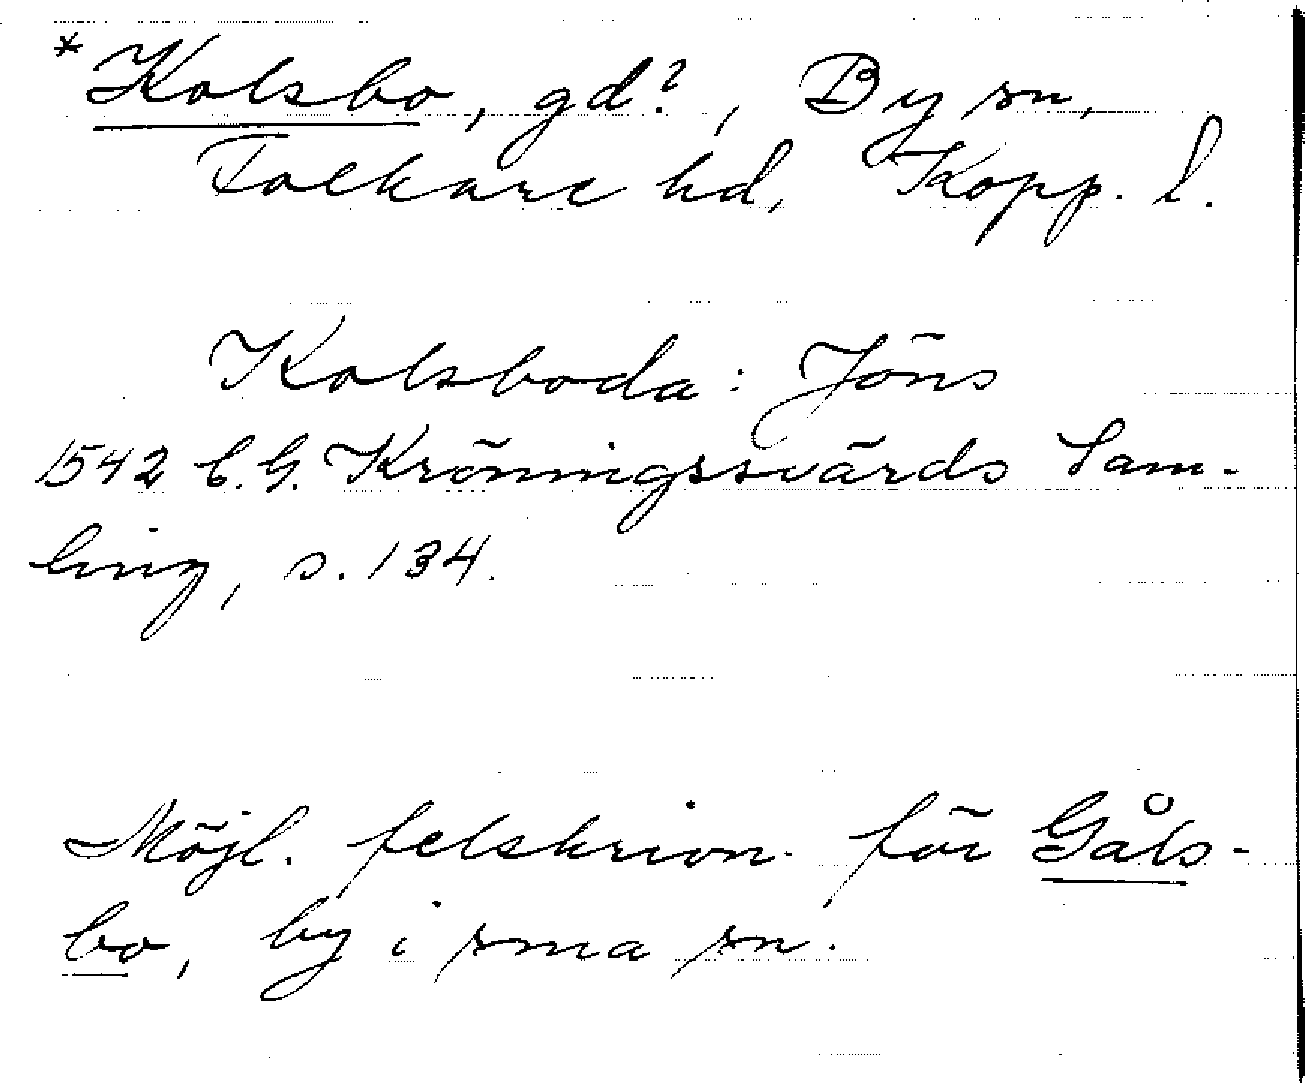 *Kolsbo, gd?, By sn,
Folkare hd, Kopp. l.
Kolsboda: Jöns
1542 C.G. Kröningssvärds Sam-
ling, s. 134.
Möjl. felskrivn. för Gåls-
bo, by i sma sn.